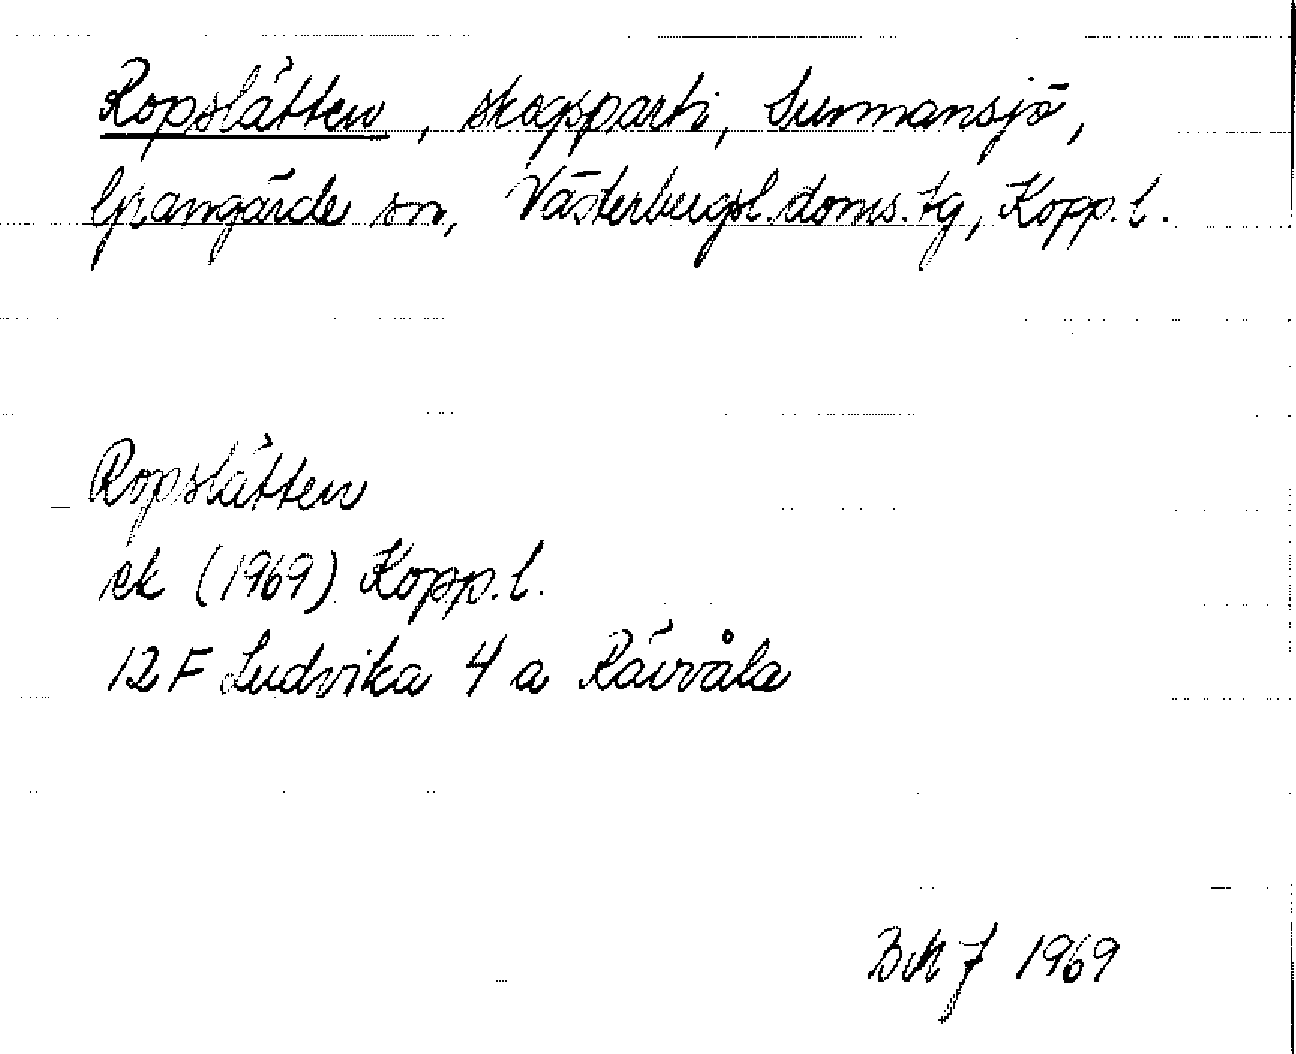 Ropslätten, skogsparti, Sunnansjö,
Grangärde sn, Västerbergsl. doms. tg, Kopp. l.
Ropslätten
ek (1969) Kopp. l.
12 F Ludvika 4 a Rävvåla
1969